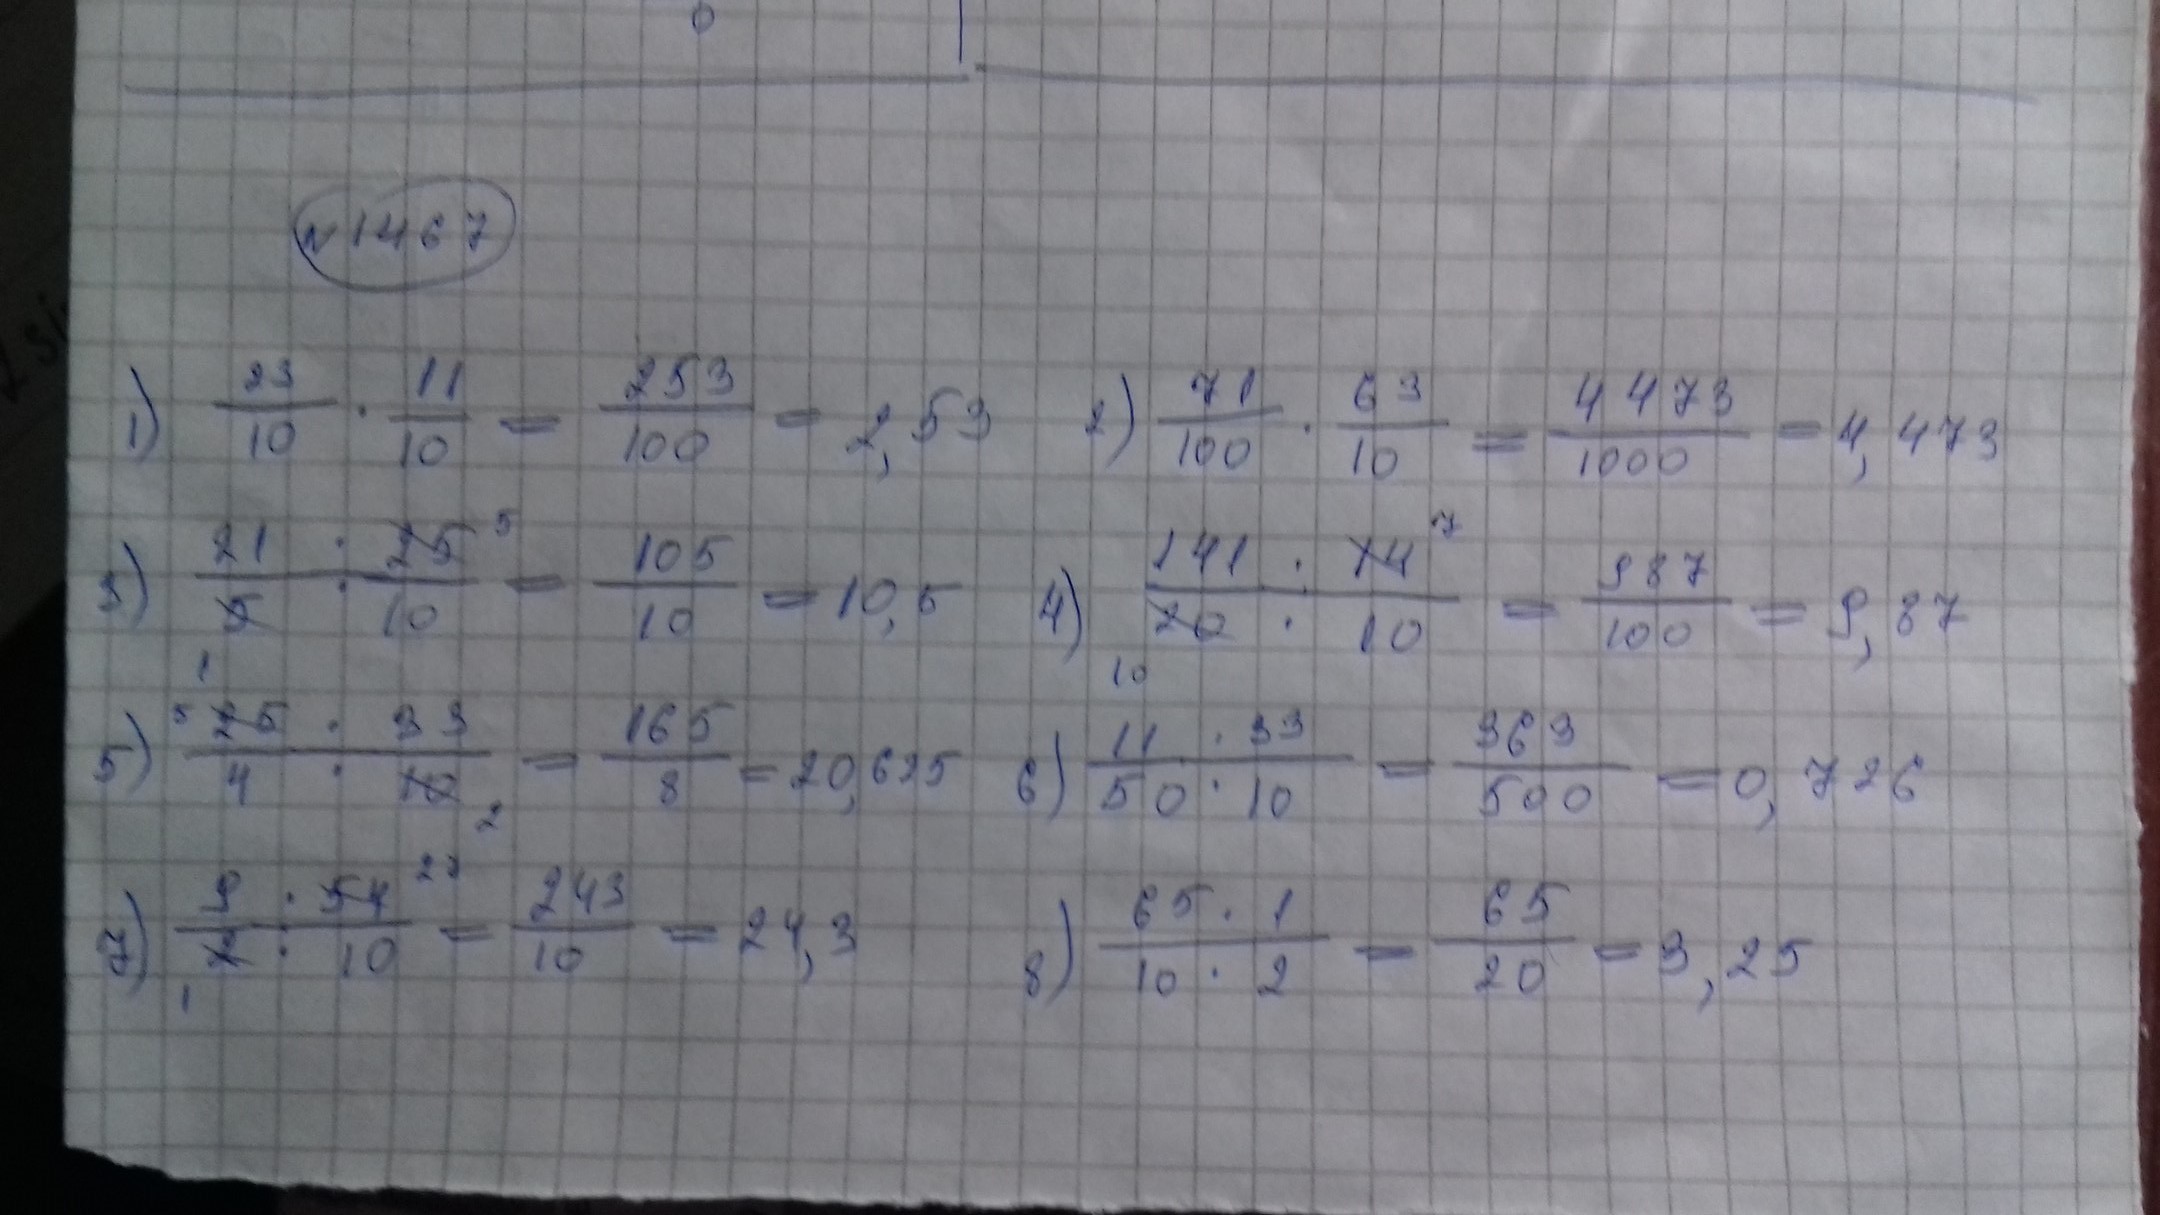 №1467
1) 23/10 · 11/10 = 253/100 = 2,53
2) 71/100 · 63/10 = 4473/1000 = 4,473
3) 21 · 25 5 / 5 · 10 = 105/10 = 10,5
1
4) 141 · 14 7 / 20 · 10 = 987/100 = 9,87
10
5) 5 25 · 33 / 4 · 10 2 = 165/8 = 20,625
6) 11 · 33 / 50 · 10 = 363/500 = 0,726
7) 9 · 54 27 / 2 · 10 = 243/10 = 24,3
1
8) 65 · 1 / 10 · 2 = 65/20 = 3,25